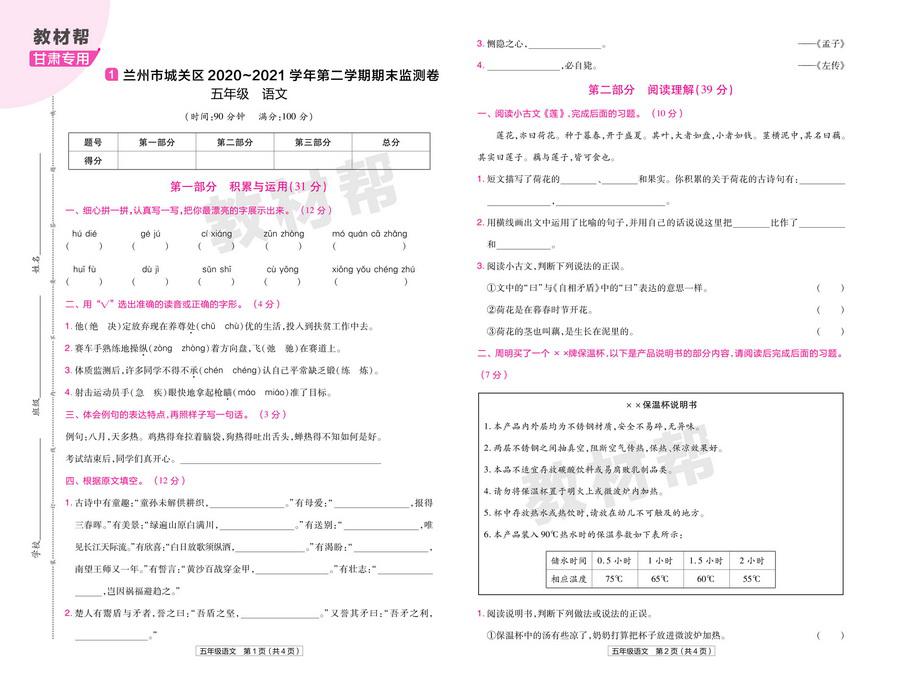 教材帮
甘肃专用
1 兰州市城关区 2020~2021 学年第二学期期末监测卷
五年级 语文
(时间:90 分钟 满分:100 分)
题号 第一部分 第二部分 第三部分 总分
得分
第一部分 积累与运用(31 分)
一、细心拼一拼,认真写一写,把你最漂亮的字展示出来。(12 分)
hú dié gē jú cí xiáng zūn zhòng mó quán cā zhǎng
( ) ( ) ( ) ( ) ( )
huī fù dù jì sǔn shī cù yōng xiōng yǒu chéng zhú
( ) ( ) ( ) ( ) ( )
二、用“√”选出准确的读音或正确的字形。(4 分)
1. 他(绝 决)定放弃现在养尊处(chǔ chù)优的生活,投入到扶贫工作中去。
2. 赛车手熟练地操纵(zòng zhòng)着方向盘,飞(弛 驰)在赛道上。
3. 体质监测后,许多同学不得不承(chén chéng)认自己平常缺乏锻(练 炼)。
4. 射击运动员手(急 疾)眼快地拿起枪瞄(máo miáo)准了目标。
三、体会例句的表达特点,再照样子写一句话。(3 分)
例句:八月,天多热。鸡热得耷拉着脑袋,狗热得吐出舌头,蝉热得不知如何是好。
考试结束后,同学们真开心。
四、根据原文填空。(12 分)
1. 古诗中有童趣:“童孙未解供耕织, 。”有母爱:“ ,报得
三春晖。”有美景:“绿遍山原白满川, 。”有送别:“ ,唯
见长江天际流。”有欣喜:“白日放歌须纵酒, 。”有渴盼:“ ,
南望王师又一年。”有誓言:“黄沙百战穿金甲, 。”有壮志:“
,岂因祸福避趋之。”
2. 楚人有鬻盾与矛者,誉之曰:“吾盾之坚, 。”又誉其矛曰:“吾矛之利,
。”
五年级语文 第 1 页(共 4 页)
姓名
班级
学校
3. 恻隐之心, 。 ——《孟子》
4. ,必自毙。 ——《左传》
第二部分 阅读理解(39 分)
一、阅读小古文《莲》,完成后面的习题。(10 分)
莲花,亦曰荷花。种于暮春,开于盛夏。其叶,大者如盘,小者如钱。茎横泥中,其名曰藕。
其实曰莲子。藕与莲子,皆可食也。
1. 短文描写了荷花的 、 和果实。你积累的关于荷花的古诗句有:
, 。
2. 用横线画出文中运用了比喻的句子,并用自己的话说说这里把 比作了
和 。
3. 阅读小古文,判断下列说法的正误。
①文中的“曰”与《自相矛盾》中的“曰”表达的意思一样。 ( )
②荷花是在暮春时节开花。 ( )
③荷花的茎也叫藕,是生长在泥里的。 ( )
二、周明买了一个 ××牌保温杯,以下是产品说明书的部分内容,请阅读后完成后面的习题。
(7 分)
××保温杯说明书
1. 本产品内外层均为不锈钢材质,安全不易碎,无异味。
2. 两层不锈钢之间抽真空,阻断空气传热,保热、保凉效果好。
3. 本品不适宜存放碳酸饮料或易腐败乳制品类。
4. 请勿将保温杯置于明火上或微波炉内加热。
5. 杯中存放热水或热饮时,请放在幼儿不可触及的地方。
6. 本产品装入 90℃热水时的保温参数如下表所示:
储水时间 0.5 小时 1 小时 1.5 小时 2 小时
相应温度 75℃ 65℃ 60℃ 55℃
1. 阅读说明书,判断下列做法或说法的正误。
①保温杯中的汤有些凉了,奶奶打算把杯子放进微波炉加热。 ( )
五年级语文 第 2 页(共 4 页)
教材帮
教材帮